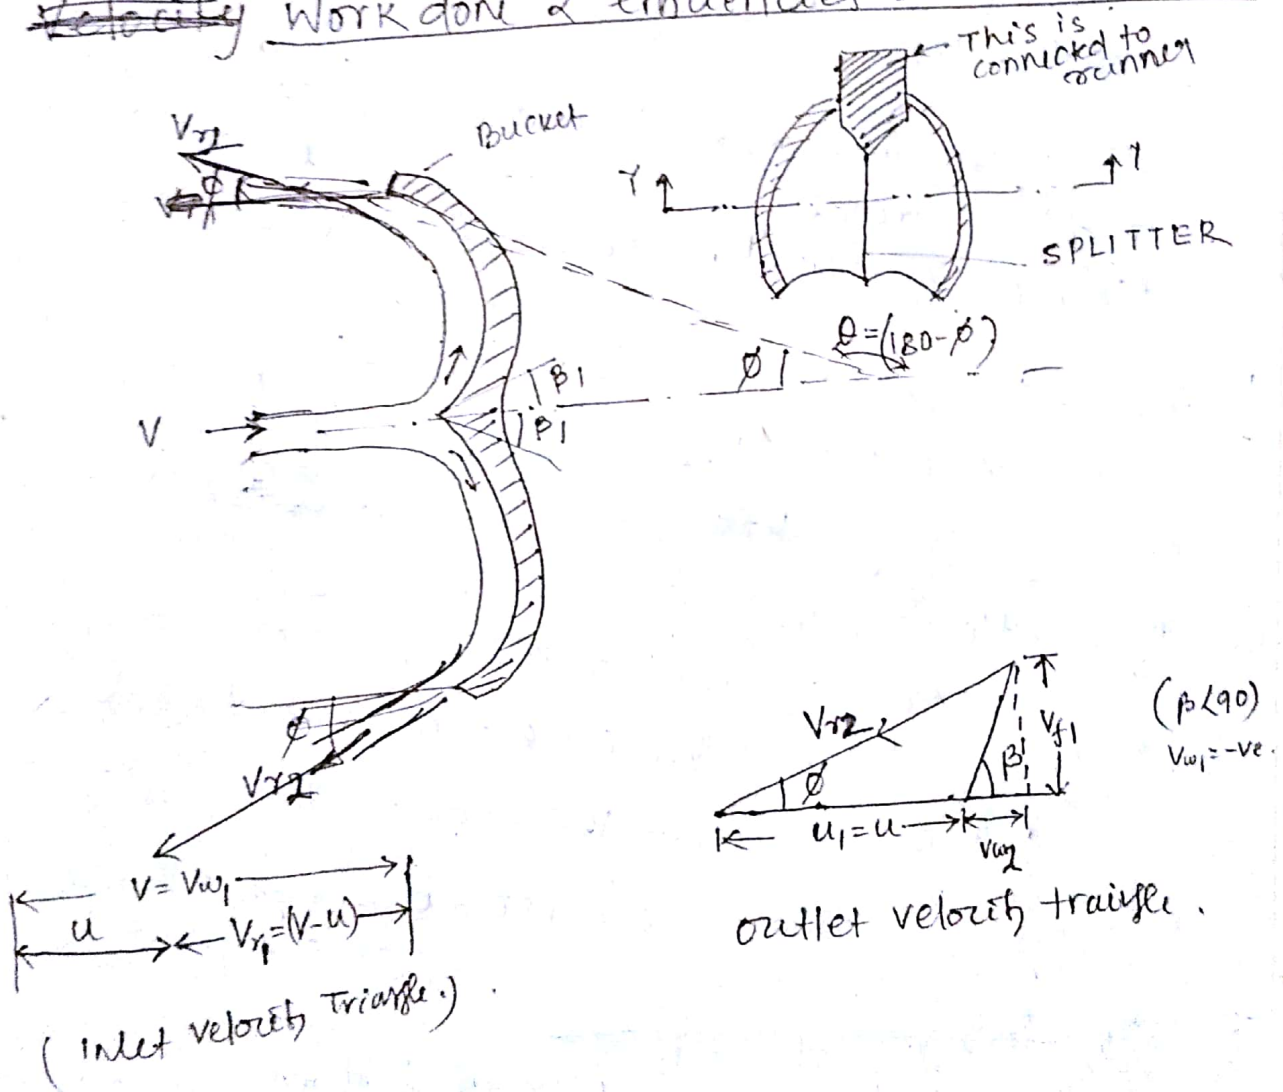 Velocity Work done & efficiencies
This is
connected to
runner
Bucket
Vr2
φ
Y Y
SPLITTER
θ=(180-φ)
φ
β1
β1
V
φ
Vr2
V = Vw1
u
Vr1=(V-u)
(Inlet velocity Triangle.).
Vr2
φ
β
Vf1
u1=u
Vw2
(β<90)
Vw1=-ve.
outlet velocity traingle.